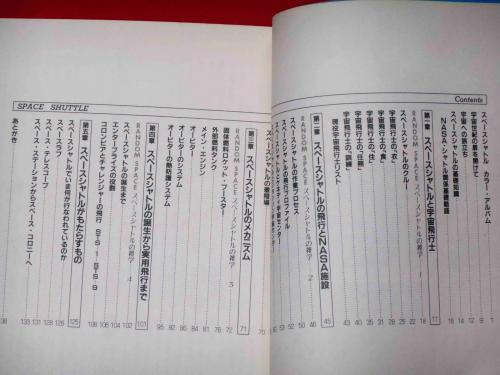 Contents
スペースシャトル カラー・アルバム 1
宇宙世紀の幕を開けて 9
宇宙への旅立ち 12
スペースシャトルの基礎知識 14
NASA・シャトル関係基礎略語 16
第一章 スペースシャトルと宇宙飛行士 17
RANDOM SPACE スペースシャトルの雑学 1 18
スペースシャトルのクルー
宇宙飛行士の「衣」
宇宙飛行士の「食」
宇宙飛行士の「住」
宇宙飛行士の「任務」
宇宙飛行士の「訓練」 40
現役宇宙飛行士リスト 43
第二章 スペースシャトルの飛行とNASA施設 45
RANDOM SPACE スペースシャトルの雑学 2 46
スペースシャトルの作業プロセス
スペースシャトルの飛行プロファイル
ケネディ宇宙センター
スペースシャトルの着陸場
第三章 スペースシャトルのメカニズム 71
RANDOM SPACE スペースシャトルの雑学 3 72
固体燃料ロケット・ブースター 76
外部燃料タンク 78
メイン・エンジン 81
オービター 82
オービターのシステム 85
オービターの熱防護システム 95
第四章 スペースシャトルの誕生から実用飛行まで 101
RANDOM SPACE スペースシャトルの雑学 4 102
スペースシャトルの誕生まで 104
エンタープライズの役割 106
コロンビアとチャレンジャーの飛行 STS 1〜STS 9 108
第五章 スペースシャトルがもたらすもの 125
スペースシャトルでいま何が行なわれているのか 126
スペースラブ 128
スペース・テレスコープ 131
スペース・ステーションからスペース・コロニーへ 133
あとがき
SPACE SHUTTLE